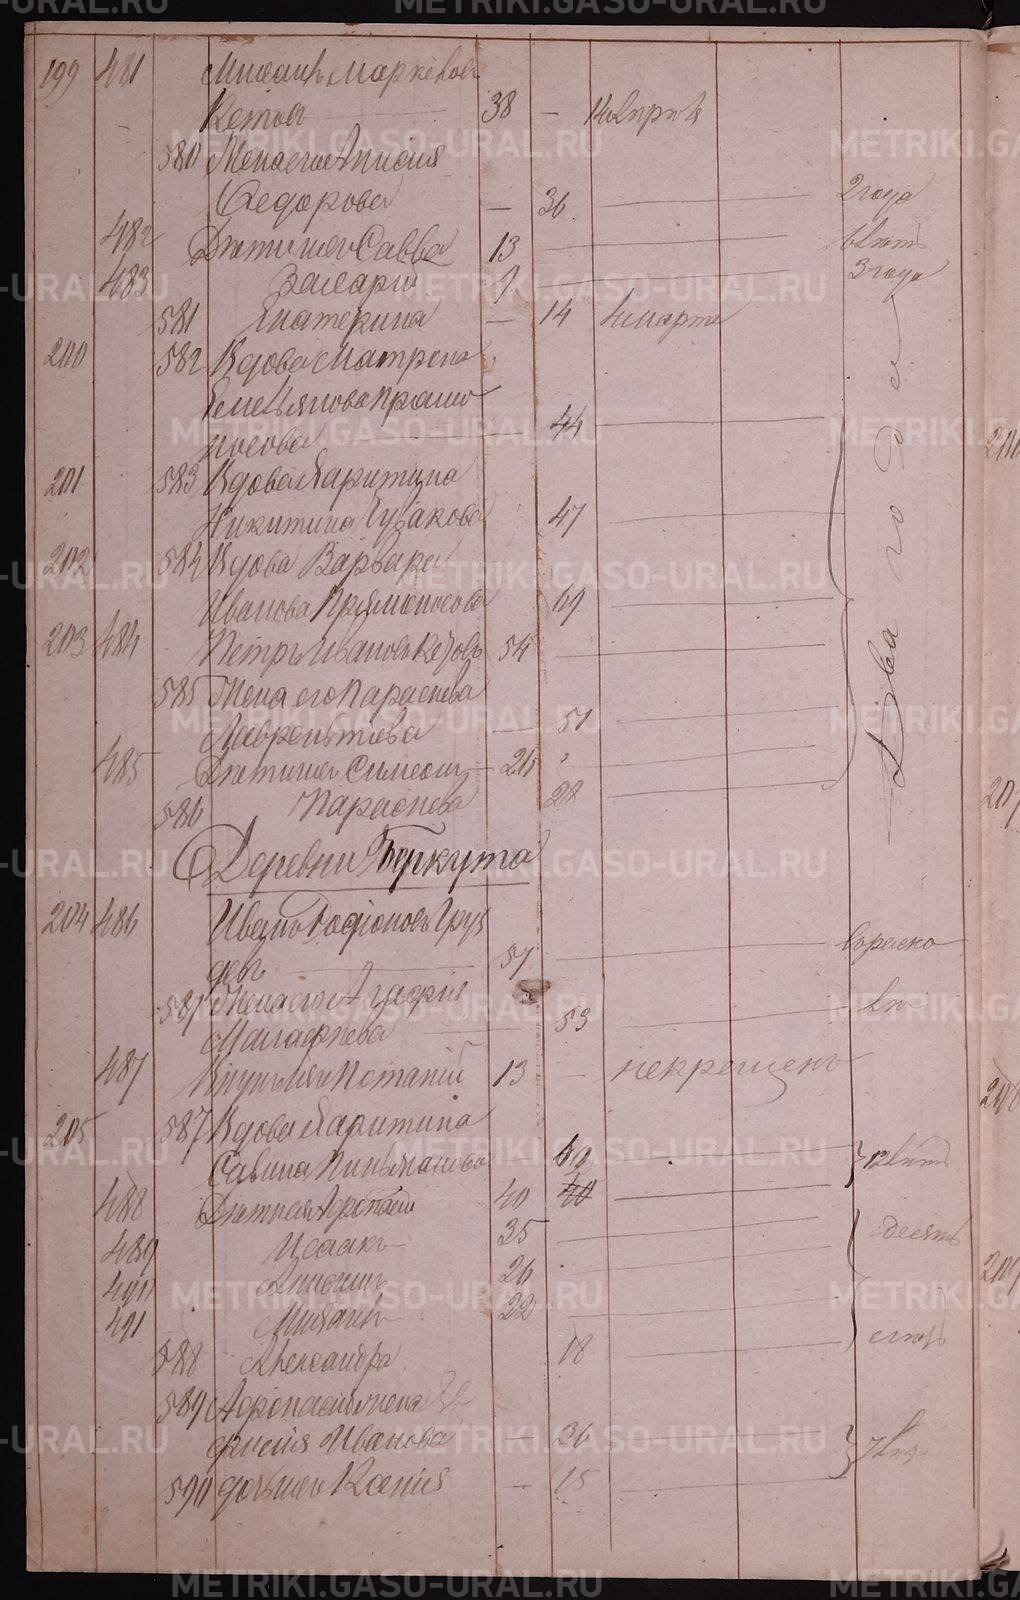 199 481 Михаилъ Маркеловъ
Кетовъ 38 — 14 Апрѣля
580 Жена его Анисия
Федорова — 36 2 года
482 Дѣти ихъ Савва 13 6 лѣтъ
483 Захарий 9 3 года
581 Екатерина — 14 4 марта
200 582 Вдова Матрона
Емельянова Прямо
носова 44
201 583 Вдова Харитина
Никитина Чувакова 47
202 584 Вдова Варвара
Иванова Прямоносова 69
203 484 Петръ Ивановъ Кетовъ 54
585 Жена его Параскева
Лаврентьева — 51
485 Дѣти ихъ Симеонъ — 26
586 Параскева 22
Два года
Деревни Беркута
204 486 Иванъ Родіоновъ Груз
девъ 57
587 Жена его Агафия
Малафѣева 53
487 Внукъ ихъ Потапій 13 — некрещенъ
205 587 Вдова Харитина
Савина 60 12 лѣтъ
488 Дѣти ея Афонасій 40 40
489 Исаакъ 35 десять
490 26
491 Михаилъ 22
588 Александра 18
589 Афонасія жена
Иванова — 36 7 лѣтъ
590 дочь ихъ Ксения — 15
206
207
208
209
METRIKI.GASO-URAL.RU